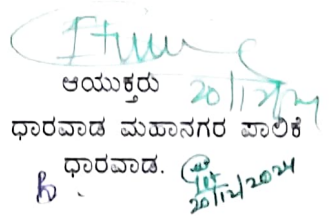 ಆಯುಕ್ತರು 20/12/24
ಧಾರವಾಡ ಮಹಾನಗರ ಪಾಲಿಕೆ
ಧಾರವಾಡ.
20/12/2024